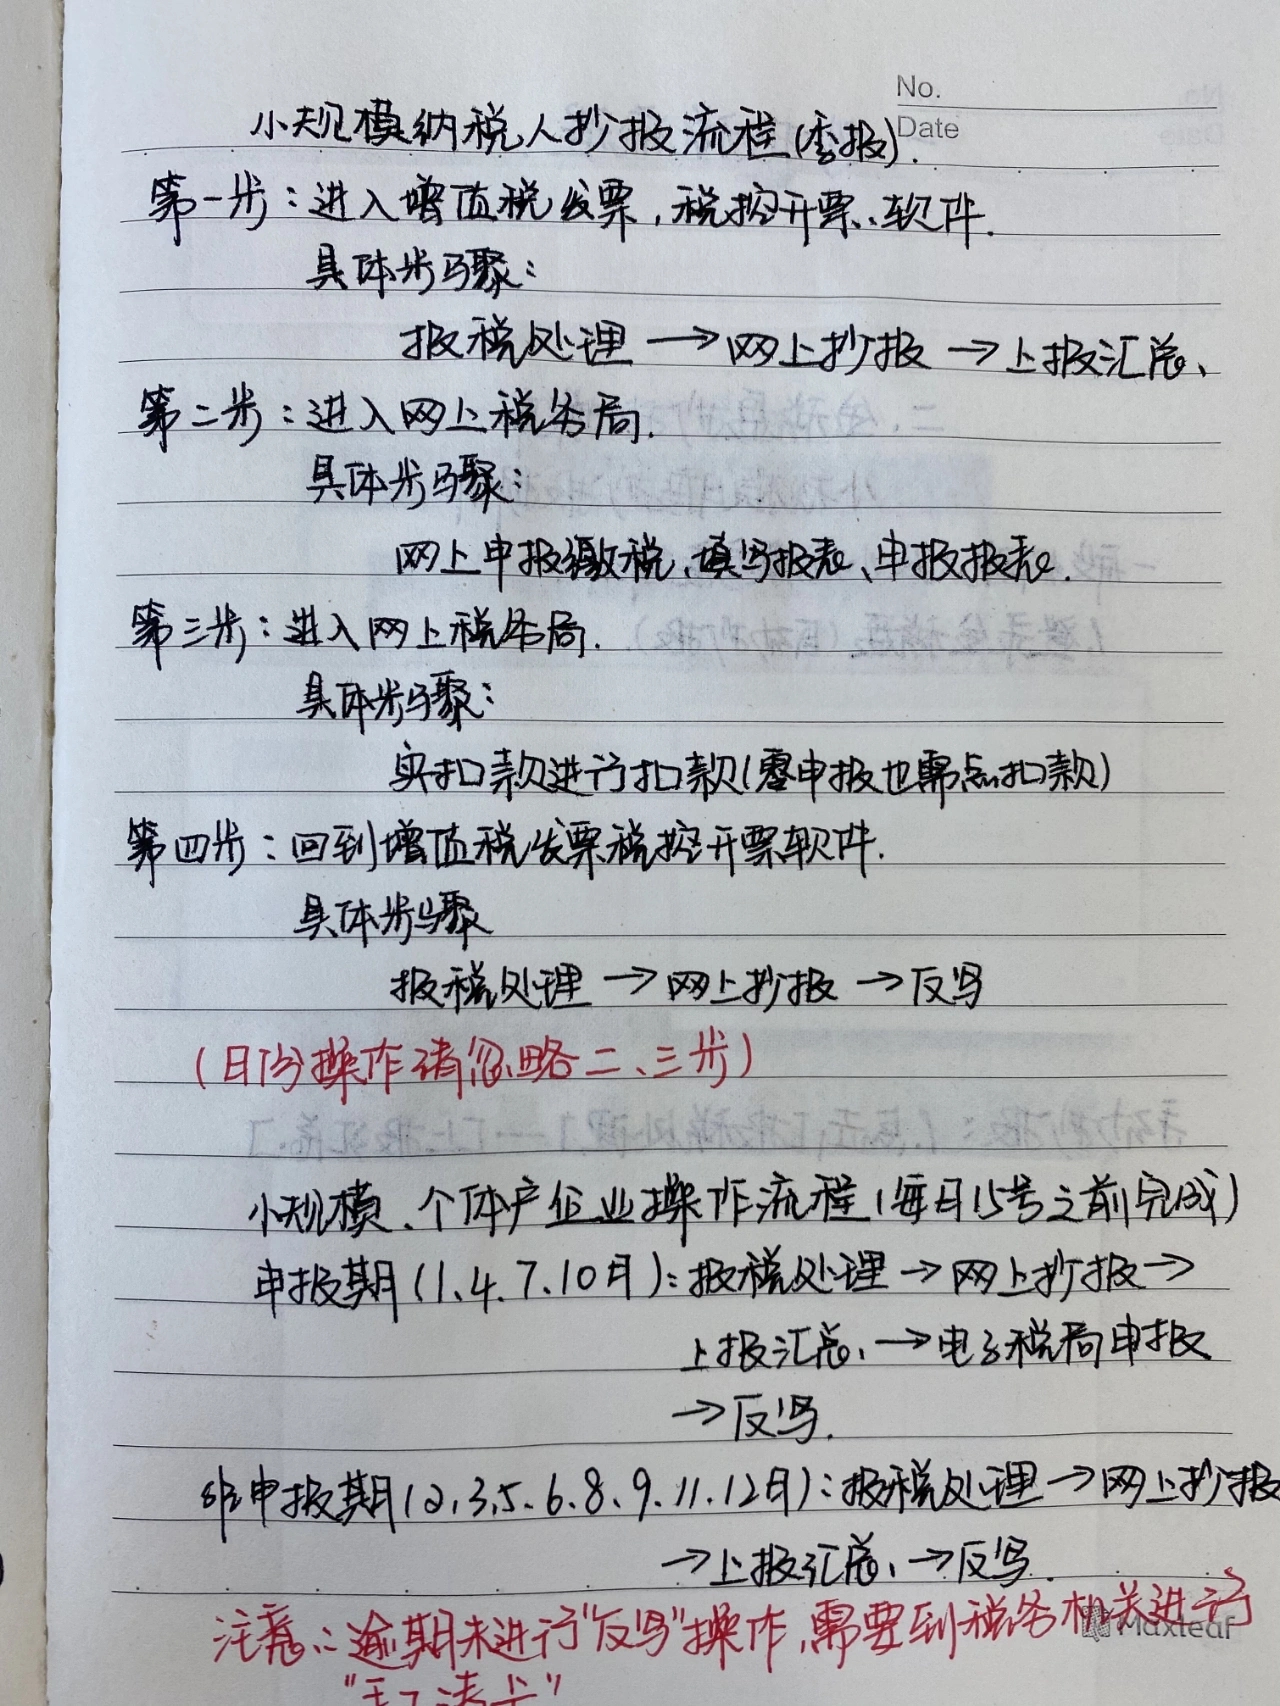 No.
Date
小规模纳税人抄报流程(季报).
第一步：进入增值税发票，税控开票、软件.
具体步骤：
报税处理→网上抄报→上报汇总、
第二步：进入网上税务局.
具体步骤：
网上申报缴税、填写报表、申报报表.
第三步：进入网上税务局.
具体步骤：
实扣款进行扣款(零申报也需点扣款)
第四步：回到增值税发票税控开票软件.
具体步骤
报税处理→网上抄报→反写
(日份操作请忽略二、三步)
小规模、个体户企业操作流程(每日15号之前完成)
申报期(1、4、7、10月)：报税处理→网上抄报→
上报汇总、→电子税局申报
→反写.
非申报期(2、3、5、6、8、9、11、12月)：报税处理→网上抄报
→上报汇总、→反写.
注意：逾期未进行"反写"操作,需要到税务机关进行
Maxleaf